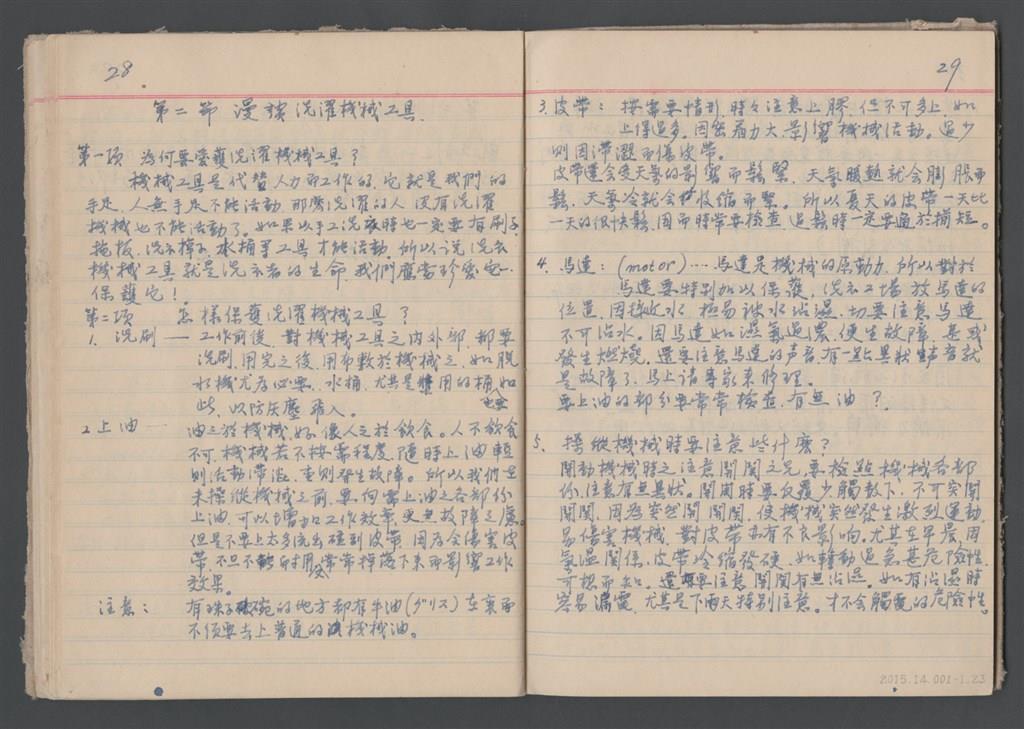 28
第二節 漫談洗濯機械工具.
第一項 為何要愛護洗濯機械工具?
機械工具是代替人力而工作的,它就是我們的
手足,人無手足不能活動,那麼洗濯的人,沒有洗濯
機械也不能活動了。如果以手工洗衣時也一定要有刷子,
拖板,洗衣棒子,水桶等工具才能活動,所以說,洗衣
機械工具就是洗衣者的生命,我們應當珍愛它.
保護它!
第二項 怎樣保護洗濯機械工具?
1. 洗刷— 工作前後,對機械工具之內外部,都要
洗刷,用完之後,用布敷於機械之,如脫
水機尤為必要。水桶,尤其是用的桶也要如
此,以防灰塵飛入。
2.上油— 油之於機械,好像人之於飲食。人不飲食
不可,機械若不按需程度,隨時上油,輕
則活動滯澁,重則發生故障。所以我們在
未操縱機械之前,要向需上油之各部份
上油,可以增加工作效率,更無故障之慮。
但是不要上太多流出碰到皮帶,因為會傷害皮
帶,不但不耐用,又常常掉落下來而影響工作
效果。
注意: 有珠子碗的地方都有牛油(グリス)在裏面
不須要去上普通的機械油。
29
3.皮帶: 按需要情形,時々注意上膠,但不可多上,如
上得過多,因黏力大,影響機械活動。過少
則因滯澀而傷皮帶。
皮帶還會受天氣的影響而鬆緊,天氣暖熱就會膨脹而
鬆,天氣冷就會收縮而緊。所以夏天的皮帶一天比
一天的很快鬆,因而時常要檢查,過鬆時一定要適於捕短。
4. 馬達:(motor)…馬達是機械的原動力,所以對於
馬達要特別加以保護,洗衣工場放馬達的
位置,因接收水,極易被水沾濕,切要注意馬達
不可沾水。因馬達如濕氣過濃,便生故障,甚或
發生燃燒。還要注意馬達的声音,有一點異狀聲音就
是故障了,馬上請專家來修理。
要上油的部分要常常檢查,有無油?.
5. 操縱機械時要注意些什麼?
開動機械時之注意開關之先,要檢點機械各部
份,注意有無異狀。開關時要反覆少觸數下,不可突開
開關,因為突然開開,使機械突然發生激烈運動,
易傷害機械,對皮帶亦有不良影响。尤其在早晨,因
氣温關係,皮帶冷縮發硬,如轉動過急甚危險性
可想而知。還要注意開關有無沾濕。如有沾濕時
容易漏電,尤其是下雨天特別注意。才不會觸電的危險性。
2015.14.001-1.23